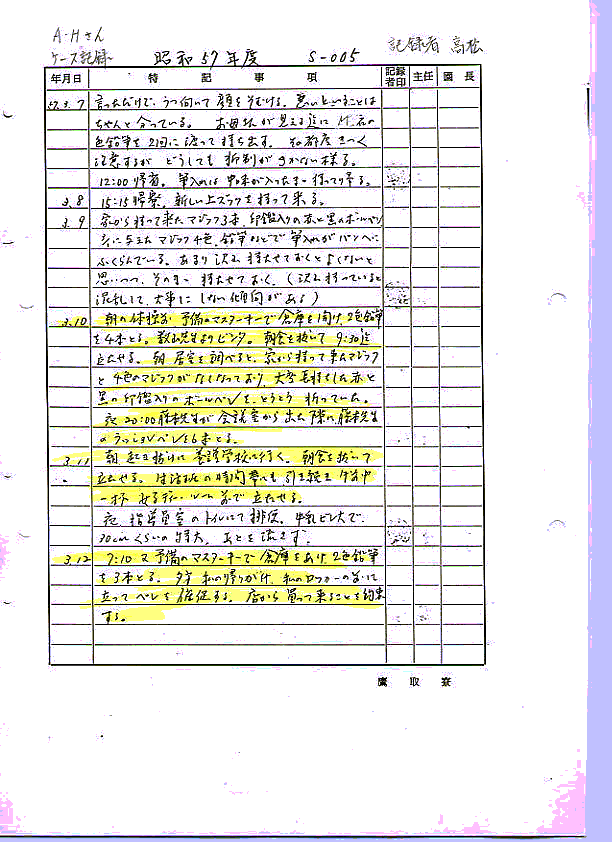 A・Hさん
ケース記録 昭和57年度 S-005 記録者 高松
年月日 特記事項 記録者印 主任 園長
57.3.7 言っただけで、うつ向いて顔をそむける。悪いということは
ちゃんと分っている。 お母さんが見える迄に M.衣の
色鉛筆を2回に渡って持ち出す。その都度きつく
注意するが どうしても抑制がきかない様る。
12:00帰省。筆入れは
3.8 15:15帰寮。新しい上ズックを持って来る。
3.9 家から持って来たマジック3本、印鑑入りの赤と黒のボールペン
マジック4色、鉛筆などで筆入れがパンパンに
ふくらんでいる。あまり沢山持たせておくとよくないと
思いつつ、そのまゝ持たせておく。(沢山持っていると
混乱して、大事にしない傾向がある)
3.10 朝の体操前 予備のマスターキーで倉庫を開け、2色鉛筆
を4本とる。 先生よりビンタ。朝食を抜いて 9:30迄
立たせる。朝 居室を調べると、家から持って来たマジック
と4色のマジックがなくなっており、大分長持ちした赤と
黒の印鑑入りのボールペンも、とうとう折っていた。
夜 20:00 藤 先生が会議室から出た際に、藤 先生
のラッションペンを6本とる。
3.11 朝 起き抜けに養護学校に行く。朝食を抜いて
立たせる。 の時間帯も引き続き 午前中
一杯 デイルーム前で立たせる。
夜 指導員室のトイレにて排便。牛乳ビン大で
30cmくらいの特大。あとを流さず。
3.12 7:10 又予備のマスターキーで倉庫をあけ、2色鉛筆
を3本とる。夕方 私の帰りがけ、私のロッカーの前に
立ってペンを催促する。店から買って来ることを約束
する。
鷹取寮